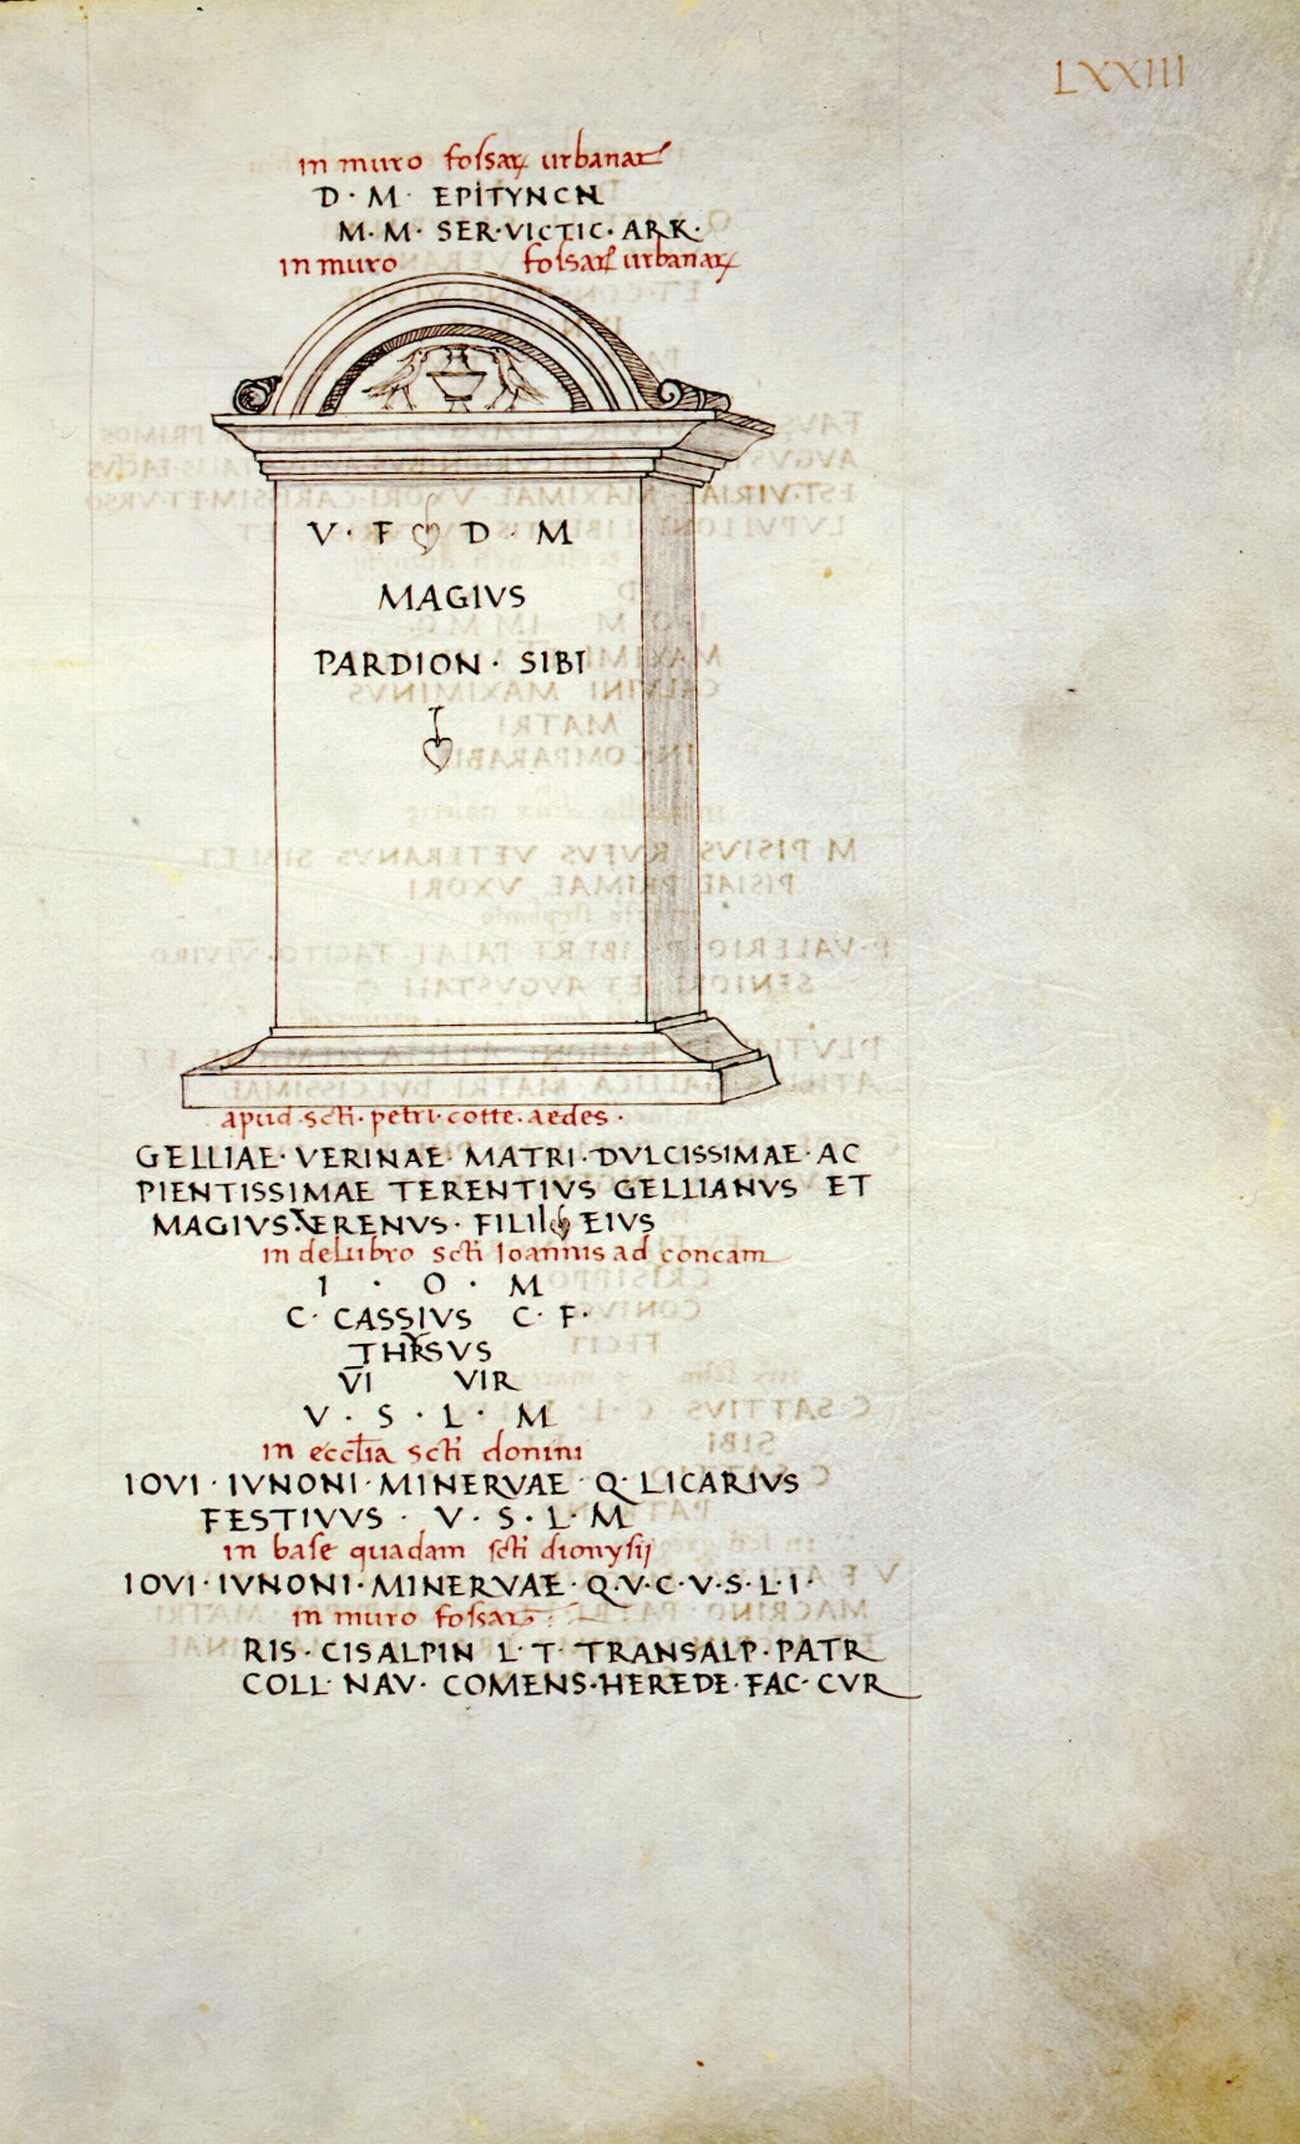 LXXIII
in muro fossaꝝ urbanaꝝ
D · M · EPITYNCN
M · M · SER · VICTIC · ARK ·
in muro fossaꝝ urbanaꝝ
V · F D · M
MAGIVS
PARDION · SIBI
apud · scti · petri · cotte · aedes ·
GELLIAE · VERINAE · MATRI · DVLCISSIMAE · AC
PIENTISSIMAE TERENTIVS GELLIANVS ET
MAGIVS VERENVS · FILII EIVS
in delubro scti Ioannis ad concam
I · O · M
C · CASSIVS C · F ·
THYRSVS
VI VIR
V · S · L · M
in ecctia scti donini
IOVI · IVNONI · MINERVAE · Q · LICARIVS
FESTIVVS · V · S · L · M
in base quadam scti dionysij
IOVI · IVNONI · MINERVAE · Q · V · C · V · S · L · I ·
in muro fossaꝝ
RIS · CISALPIN L · T · TRANSALP · PATR
COLL · NAV · COMENS · HEREDE · FAC · CVR